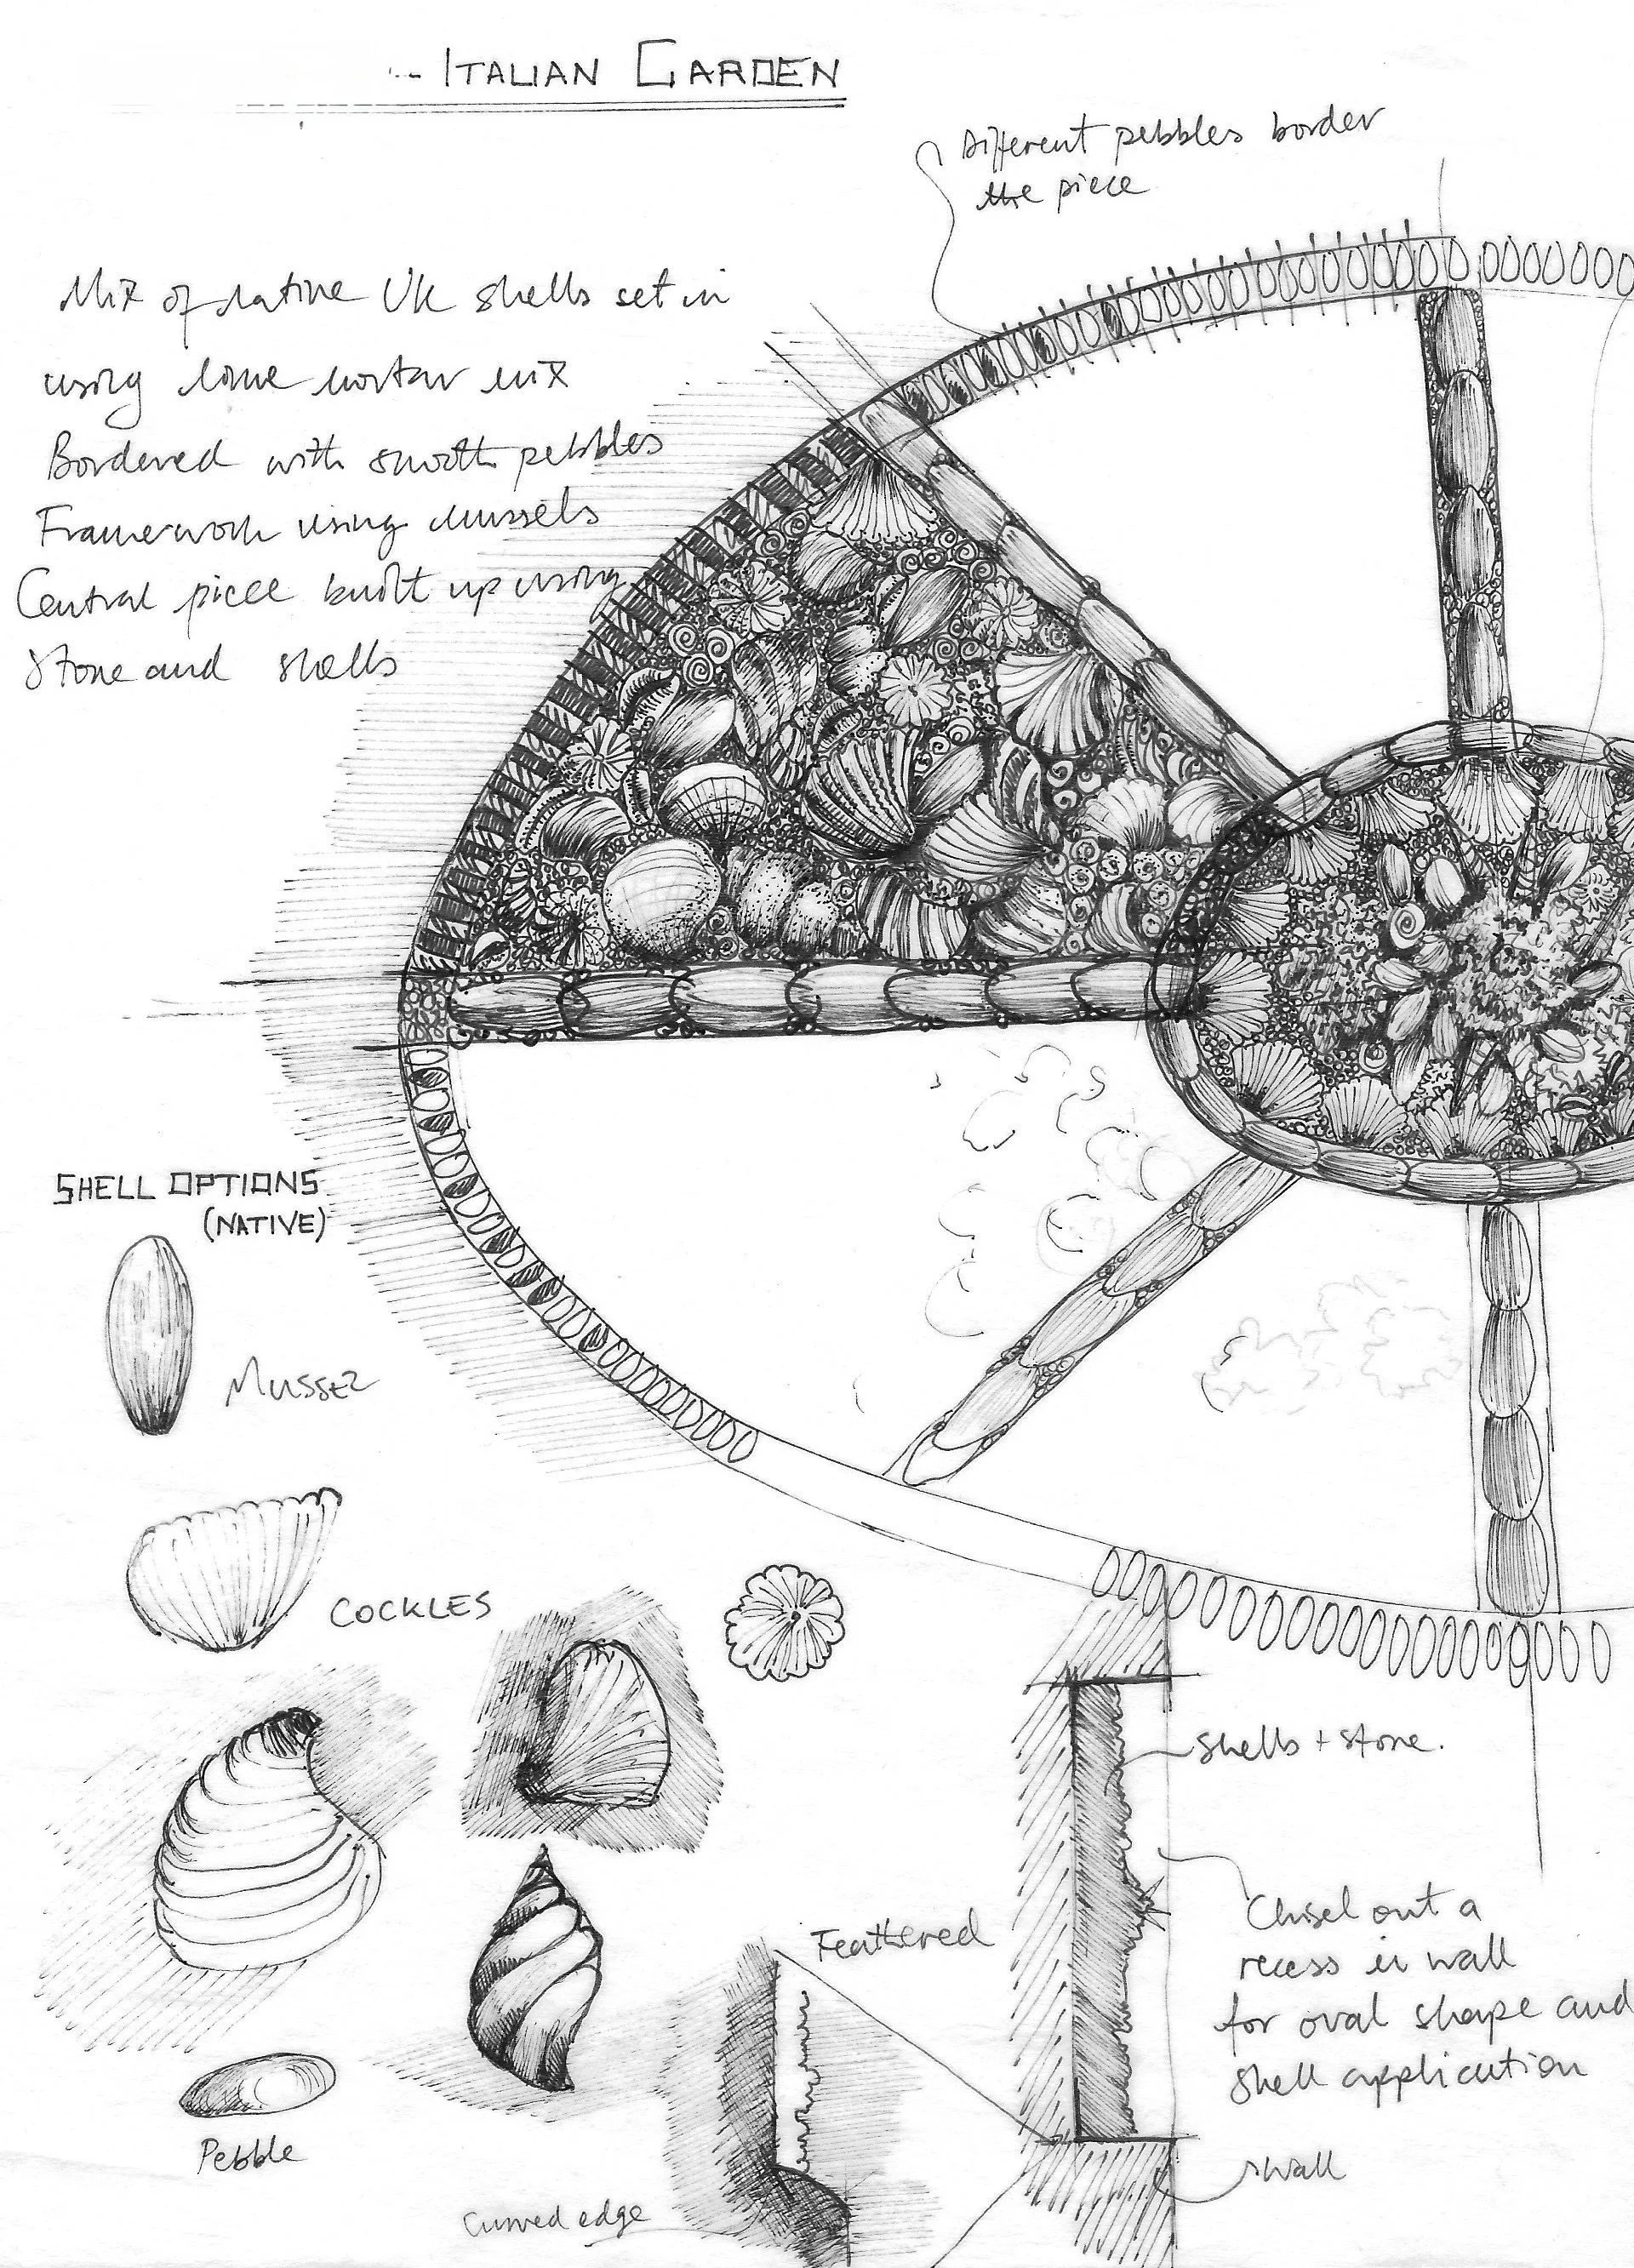 ITALIAN GARDEN
Different pebbles border
the piece
Mix of native UK shells set in
using lime mortar mix
Bordered with smooth pebbles
Framework using mussels
Central piece built up using
Stone and shells
SHELL OPTIONS
(NATIVE)
MUSSEL
COCKLES
Shells + stone.
Feathered
Chisel out a
recess in wall
for oval shape and
shell application
Pebble
wall
Curved edge